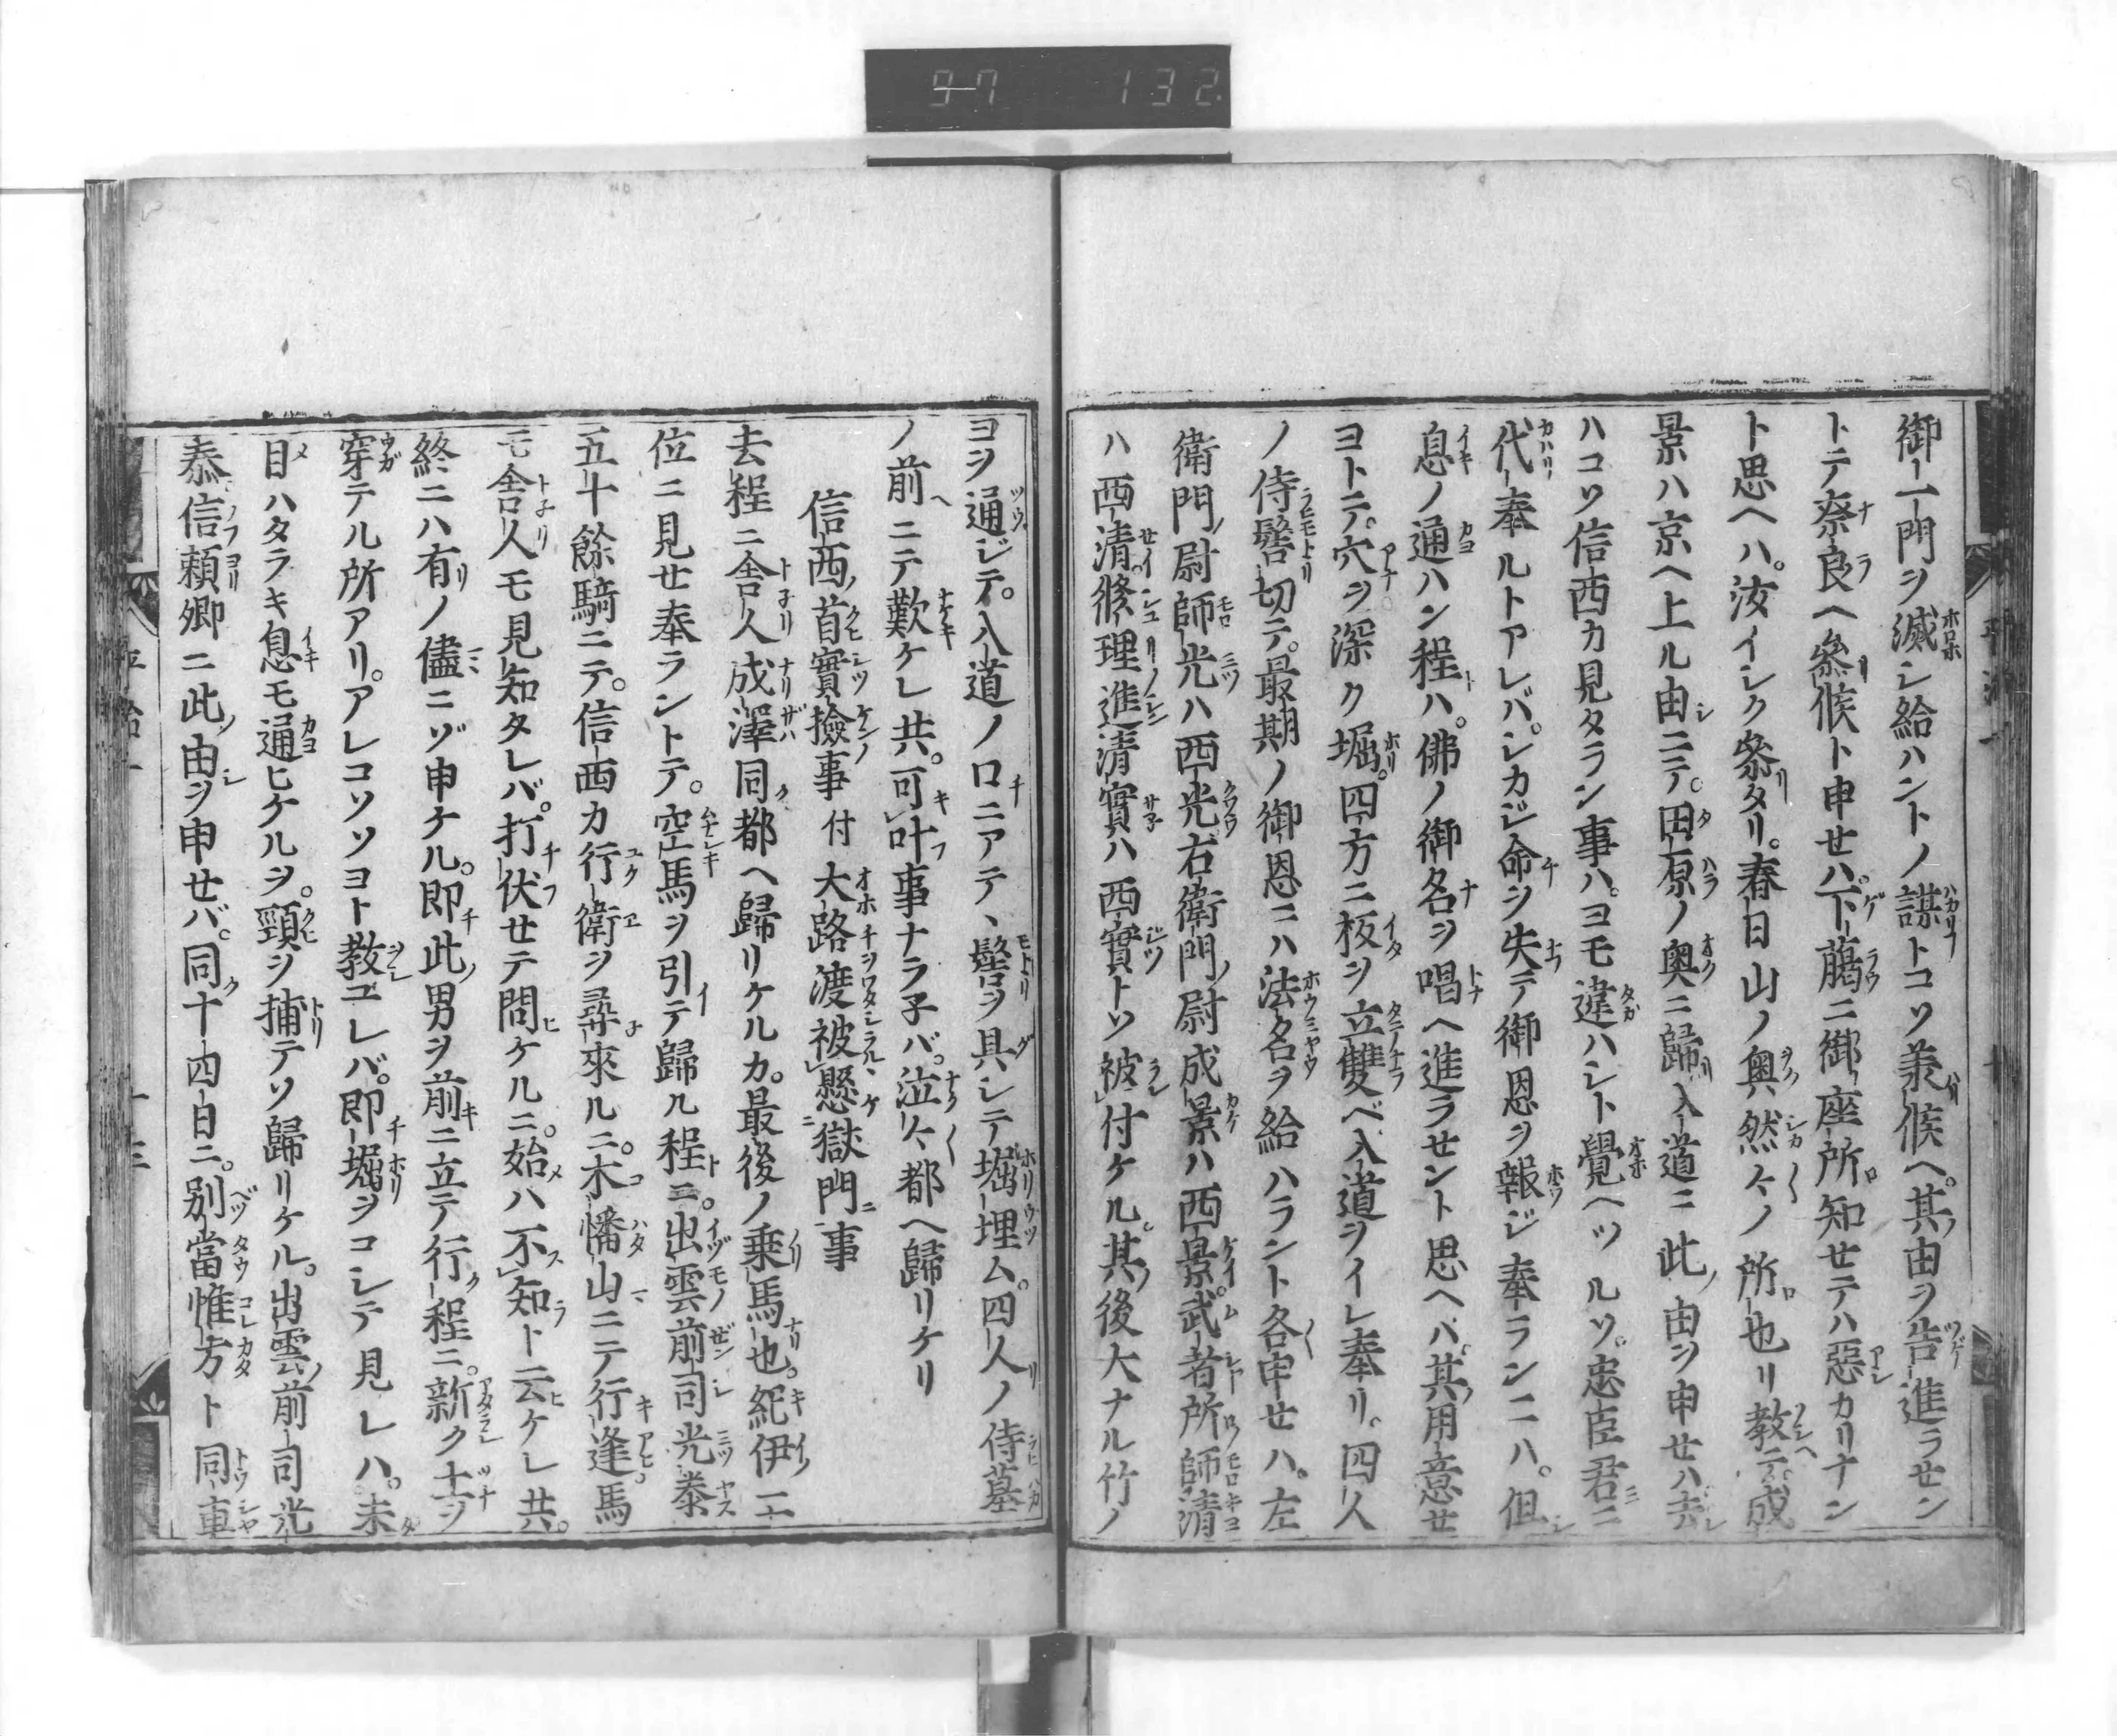 97 132
御一門ヲ滅シ給ハントノ謀トコソ兼候ヘ。其由ヲ告進ラセン
トテ奈良ヘ參候ト申セハ。下﨟ニ御座所知セテハ惡カリナン
ト思ヘハ。汝イシク參タリ。春日山ノ奥然〻ノ所也ト教テ。成
景ハ京ヘ上ル由ニテ。田原ノ奥ニ歸入道ニ此由ヲ申セハ。去
ハコソ信西カ見タラン事ハ。ヨモ違ハシト覺ヘツルソ。忠臣君ニ
代奉ルトアレバ。シカジ命ヲ失テ御恩ヲ報ジ奉ランニハ。但
息ノ通ハン程ハ。佛ノ御名ヲ唱ヘ進ラセント思ヘバ。其用意セ
ヨトテ。穴ヲ深ク堀。四方ニ板ヲ立雙ベ入道ヲイレ奉リ。四人
ノ侍髻切テ。最期ノ御恩ニハ法名ヲ給ハラント各申セハ。左
衛門尉師光ハ西光右衛門尉成景ハ西景武者所師清
ハ西清。修理進清實ハ西實トソ被付ケル。其後大ナル竹ノ
ヨヲ通ジテ。入道ノ口ニアテヽ髻ヲ具シテ堀埋ム。四人ノ侍墓
ノ前ニテ歎ケレ共。可叶事ナラ子バ。泣〻都ヘ歸リケリ
信西首實撿事付大路渡被懸獄門事
去程ニ舎人成澤同都ヘ歸リケルカ。最後ノ乗馬也。紀伊二
位ニ見せ奉ラントテ。空馬ヲ引テ歸ル程ニ。出雲前司光泰
五十餘騎ニテ。信西カ行衛ヲ尋來ルニ。木幡山ニテ行逢馬
モ舎人モ見知タレバ。打伏セテ問ケルニ。始ハ不知ト云ケレ共。
終ニハ有ノ儘ニゾ申ケル。即此男ヲ前ニ立テ行程ニ。新ク土ヲ
穿テル所アリ。アレコソソヨト教ユレバ。即堀ヲコシテ見レハ。未
目ハタラキ息モ通ヒケルヲ。頸ヲ捕テソ歸リケル。出雲前司光
泰信頼卿ニ此由ヲ申セバ。同十四日ニ。別當惟方ト同車